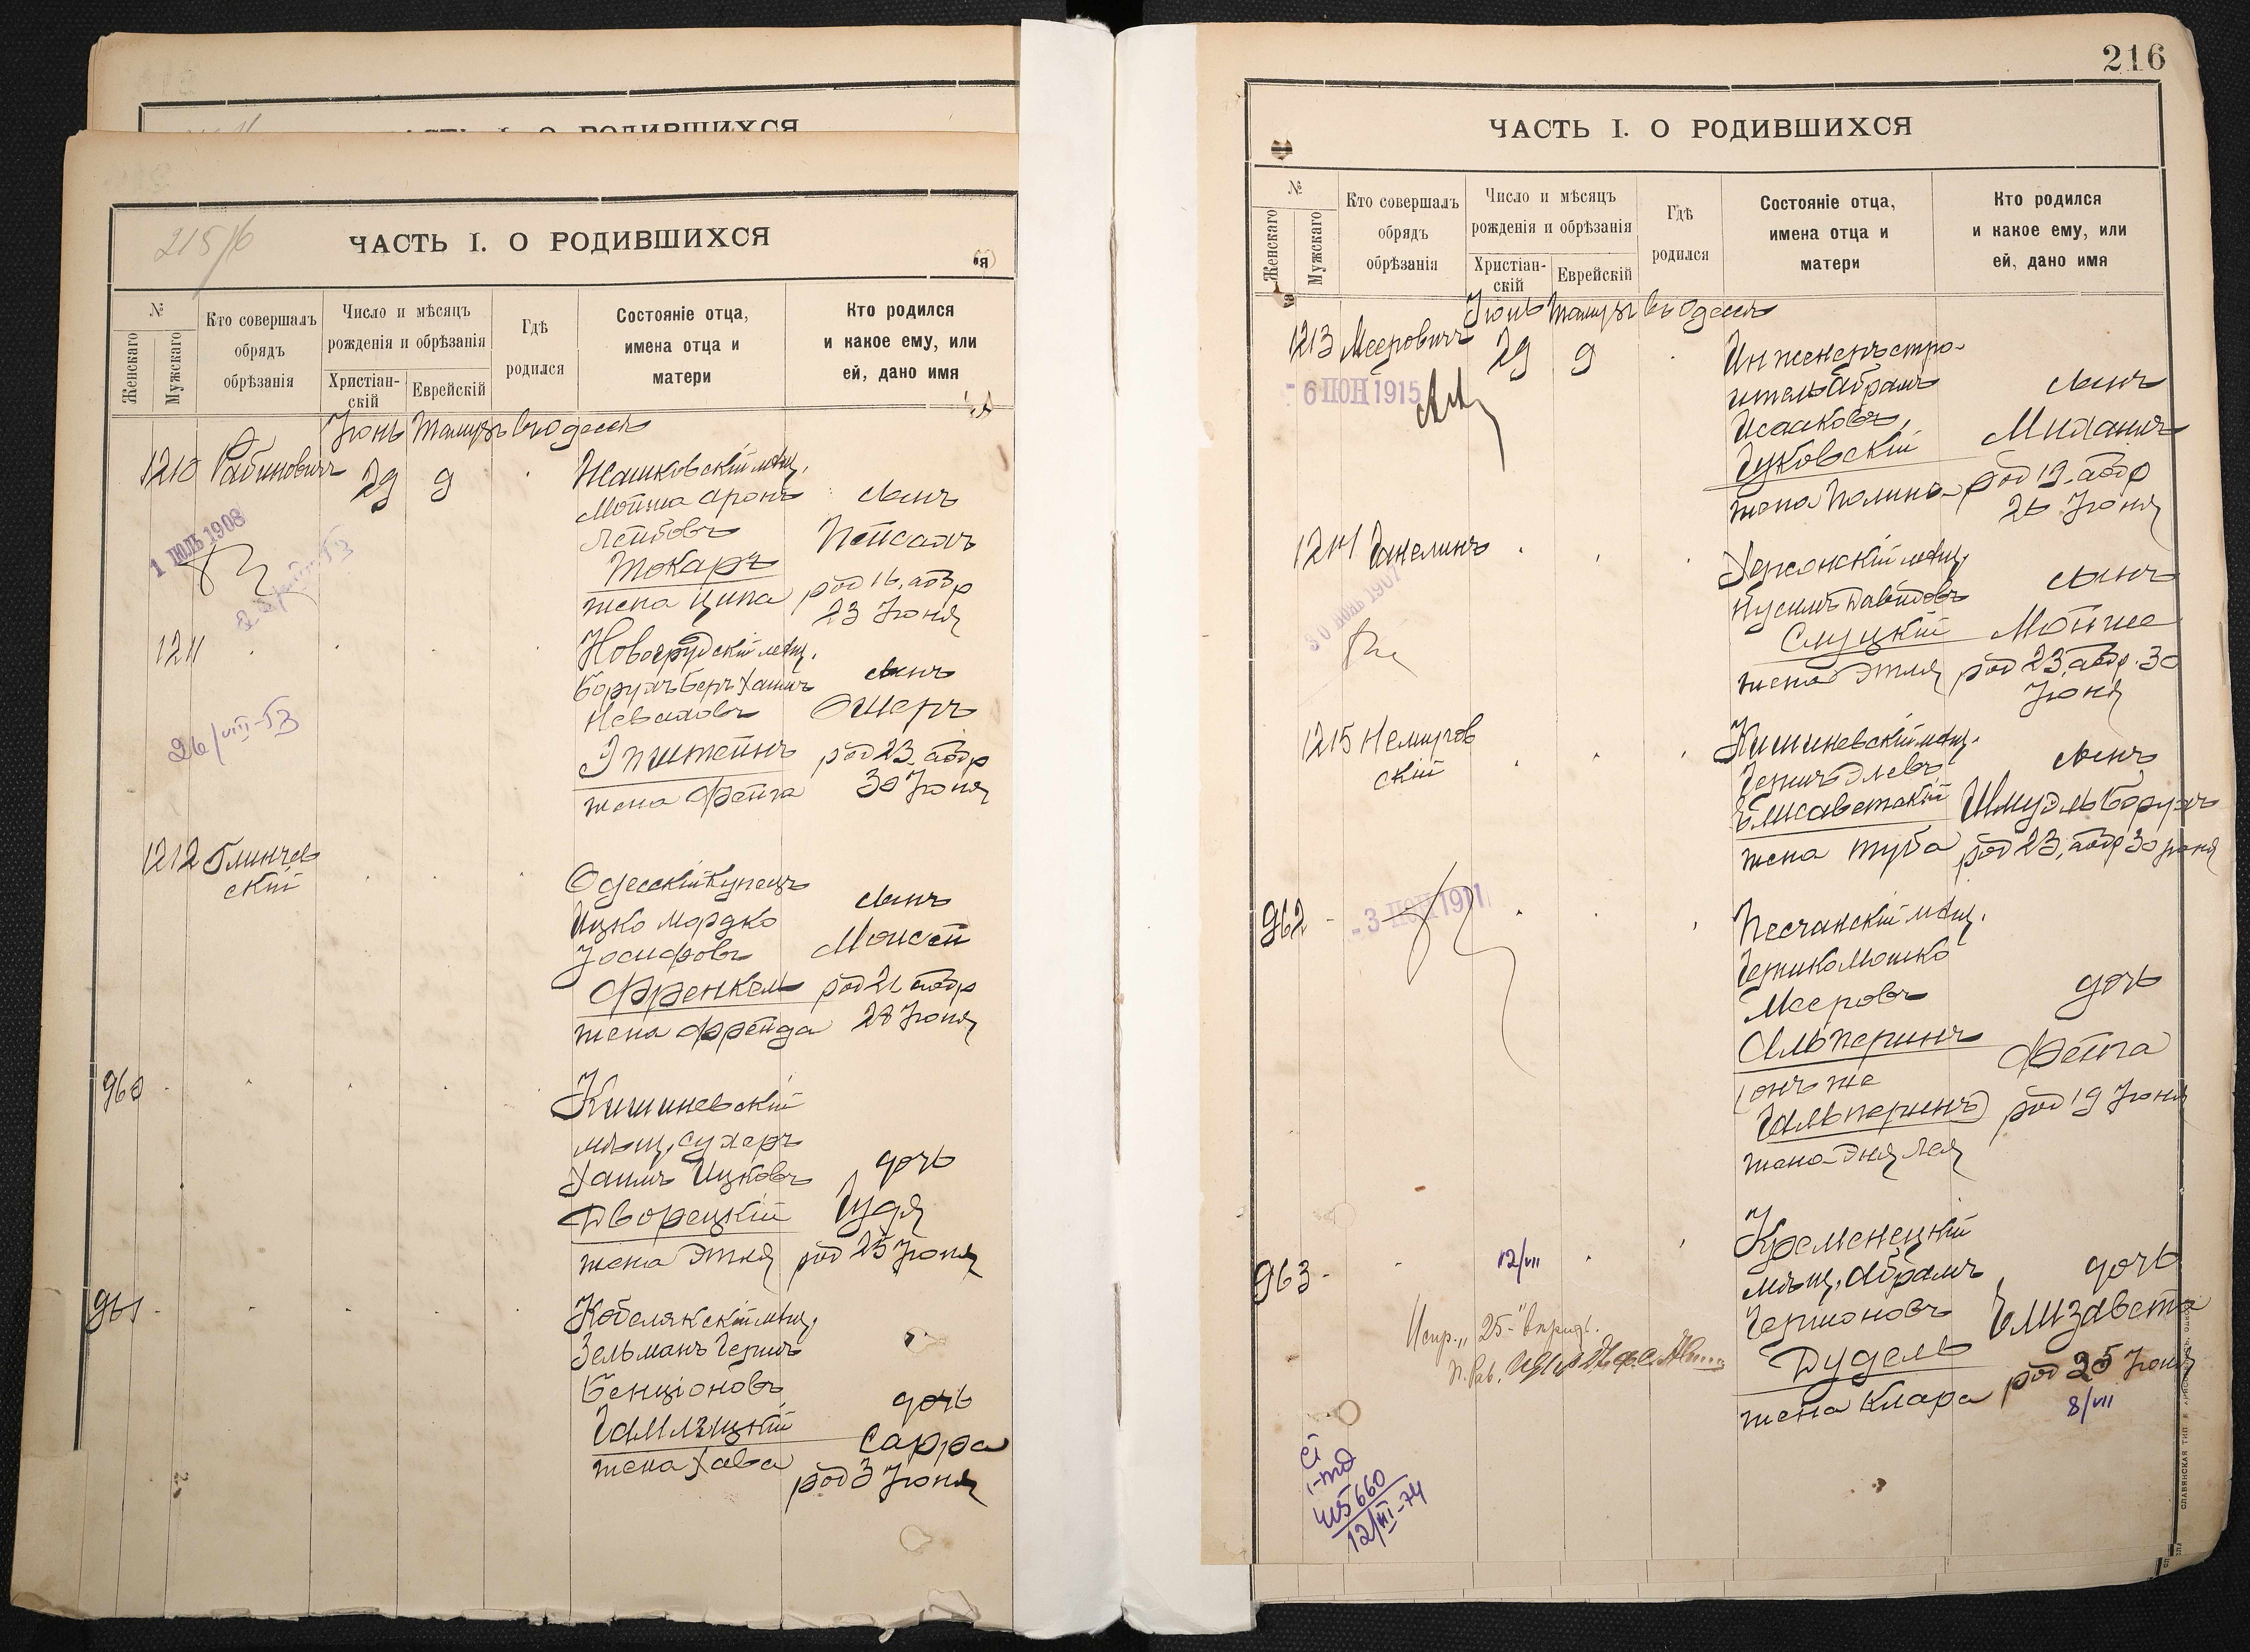 ЧАСТЬ I. О РОДИВШИХСЯ
ЧАСТЬ I. О РОДИВШИХСЯ
№
Женскаго
Мужскаго
Кто совершалъ
обрядъ
обрѣзанія
Число и мѣсяцъ
рожденія и обрѣзанія
Христіан-
скій
Еврейскій
Гдѣ
родился
Состояніе отца,
имена отца и
матери
Кто родился
и какое ему, или
ей, дано имя
Іюнь Тамузъ въ Одессѣ
1210 Рабиновичъ 29 9
Жашковскій мѣщ.
Мойша Аронъ
Лейбовъ
Токаръ
жена Ципа
сынъ
Пейсахъ
род 16, аобр
23 Іюня
1 ІЮЛЬ 1908
1211
Новогрудскій мѣщ.
Борухъ Беръ Хаимъ
Неваховъ
Эпштейнъ
жена Фейга
сынъ
Ошеръ
род 23, аобр
30 Іюня
26/VIII-53
1212 Глинчев
скій
Одесскій Купецъ
Ицко Мордко
Іосифовъ
Френкель
жена Фрейда
сынъ
Моисей
род 21 аобр
28 Іюня
960
Кишиневскій
мѣщ. Сухеръ
Хаимъ Ицковъ
Дворецкій
жена Этля
дочь
Гудя
род 25 Іюня
961
Кобелякскій мѣщ.
Зельманъ Гершъ
Бенціоновъ
жена Хава
дочь
Сарра
род 3 Іюня
216
ЧАСТЬ I. О РОДИВШИХСЯ
№
Женскаго
Мужскаго
Кто совершалъ
обрядъ
обрѣзанія
Число и мѣсяцъ
рожденія и обрѣзанія
Христіан-
скій
Еврейскій
Гдѣ
родился
Состояніе отца,
имена отца и
матери
Кто родился
и какое ему, или
ей, дано имя
Іюнь Тамузъ въ Одессѣ
1213 Мееровичъ 29 9
- 6 ІЮН 1915
Инженеръ стро-
итель Абрамъ
Исааковъ
Цуковскій
жена Полина
сынъ
Миханъ
род 19, аобр
26 Іюня
1214 Ганелинъ
Херсонскій мѣщ.
Нусимъ Давидовъ
Слуцкій
жена Этля
сынъ
Мойше
род 23, аобр. 30
Іюня
1215 Немиров
скій
Кишиневскій мѣщ.
Гершъ Элевъ
Елисаветскій
жена Туба
сынъ
Шмуэль Борухъ
род 23, аобр 30 Іюня
962
- 3 ІЮН 1911
Песчанскій мѣщ.
Гершко Мошко
Мееровъ
Альперинъ
(онъ же
Гальперинъ)
жена Эня Лея
дочь
Фейга
род 19 Іюня
963
12/VII
Кременецкій
мѣщ. Абрамъ
Гершоновъ
Дудель
жена Клара
дочь
Елизавета
род 25 Іюня
8/VII
Испр. „25" вѣрить.
415660
12/III-74